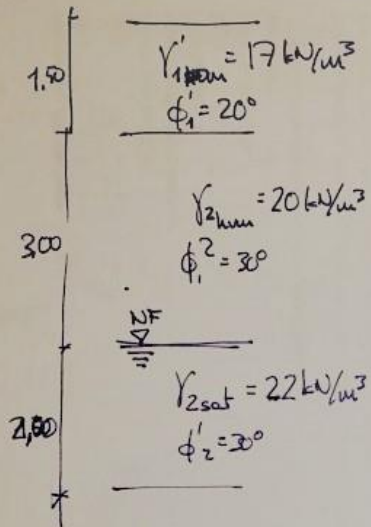 1,50
γ'₁ = 17 kN/m³
ϕ'₁ = 20°
3,00
γ₂hum = 20 kN/m³
ϕ₁² = 30°
NF
γ₂sat = 22 kN/m³
ϕ'₂ = 30°